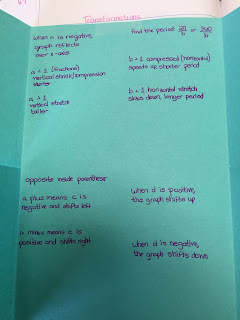 Transformations
when a is negative,
graph reflects
over x-axis
find the period: 2π/b or 360/b
a < 1 (fractions)
vertical shrink/compression
shorter
b > 1 compressed (horizontal)
speeds up shorter period
a > 1
vertical stretch
taller
b < 1 horizontal stretch
slows down, longer period
opposite inside parentheses
a plus means c is
negative and shifts left
when d is positive,
the graph shifts up
a minus means c is
positive and shifts right
when d is negative,
the graph shifts down